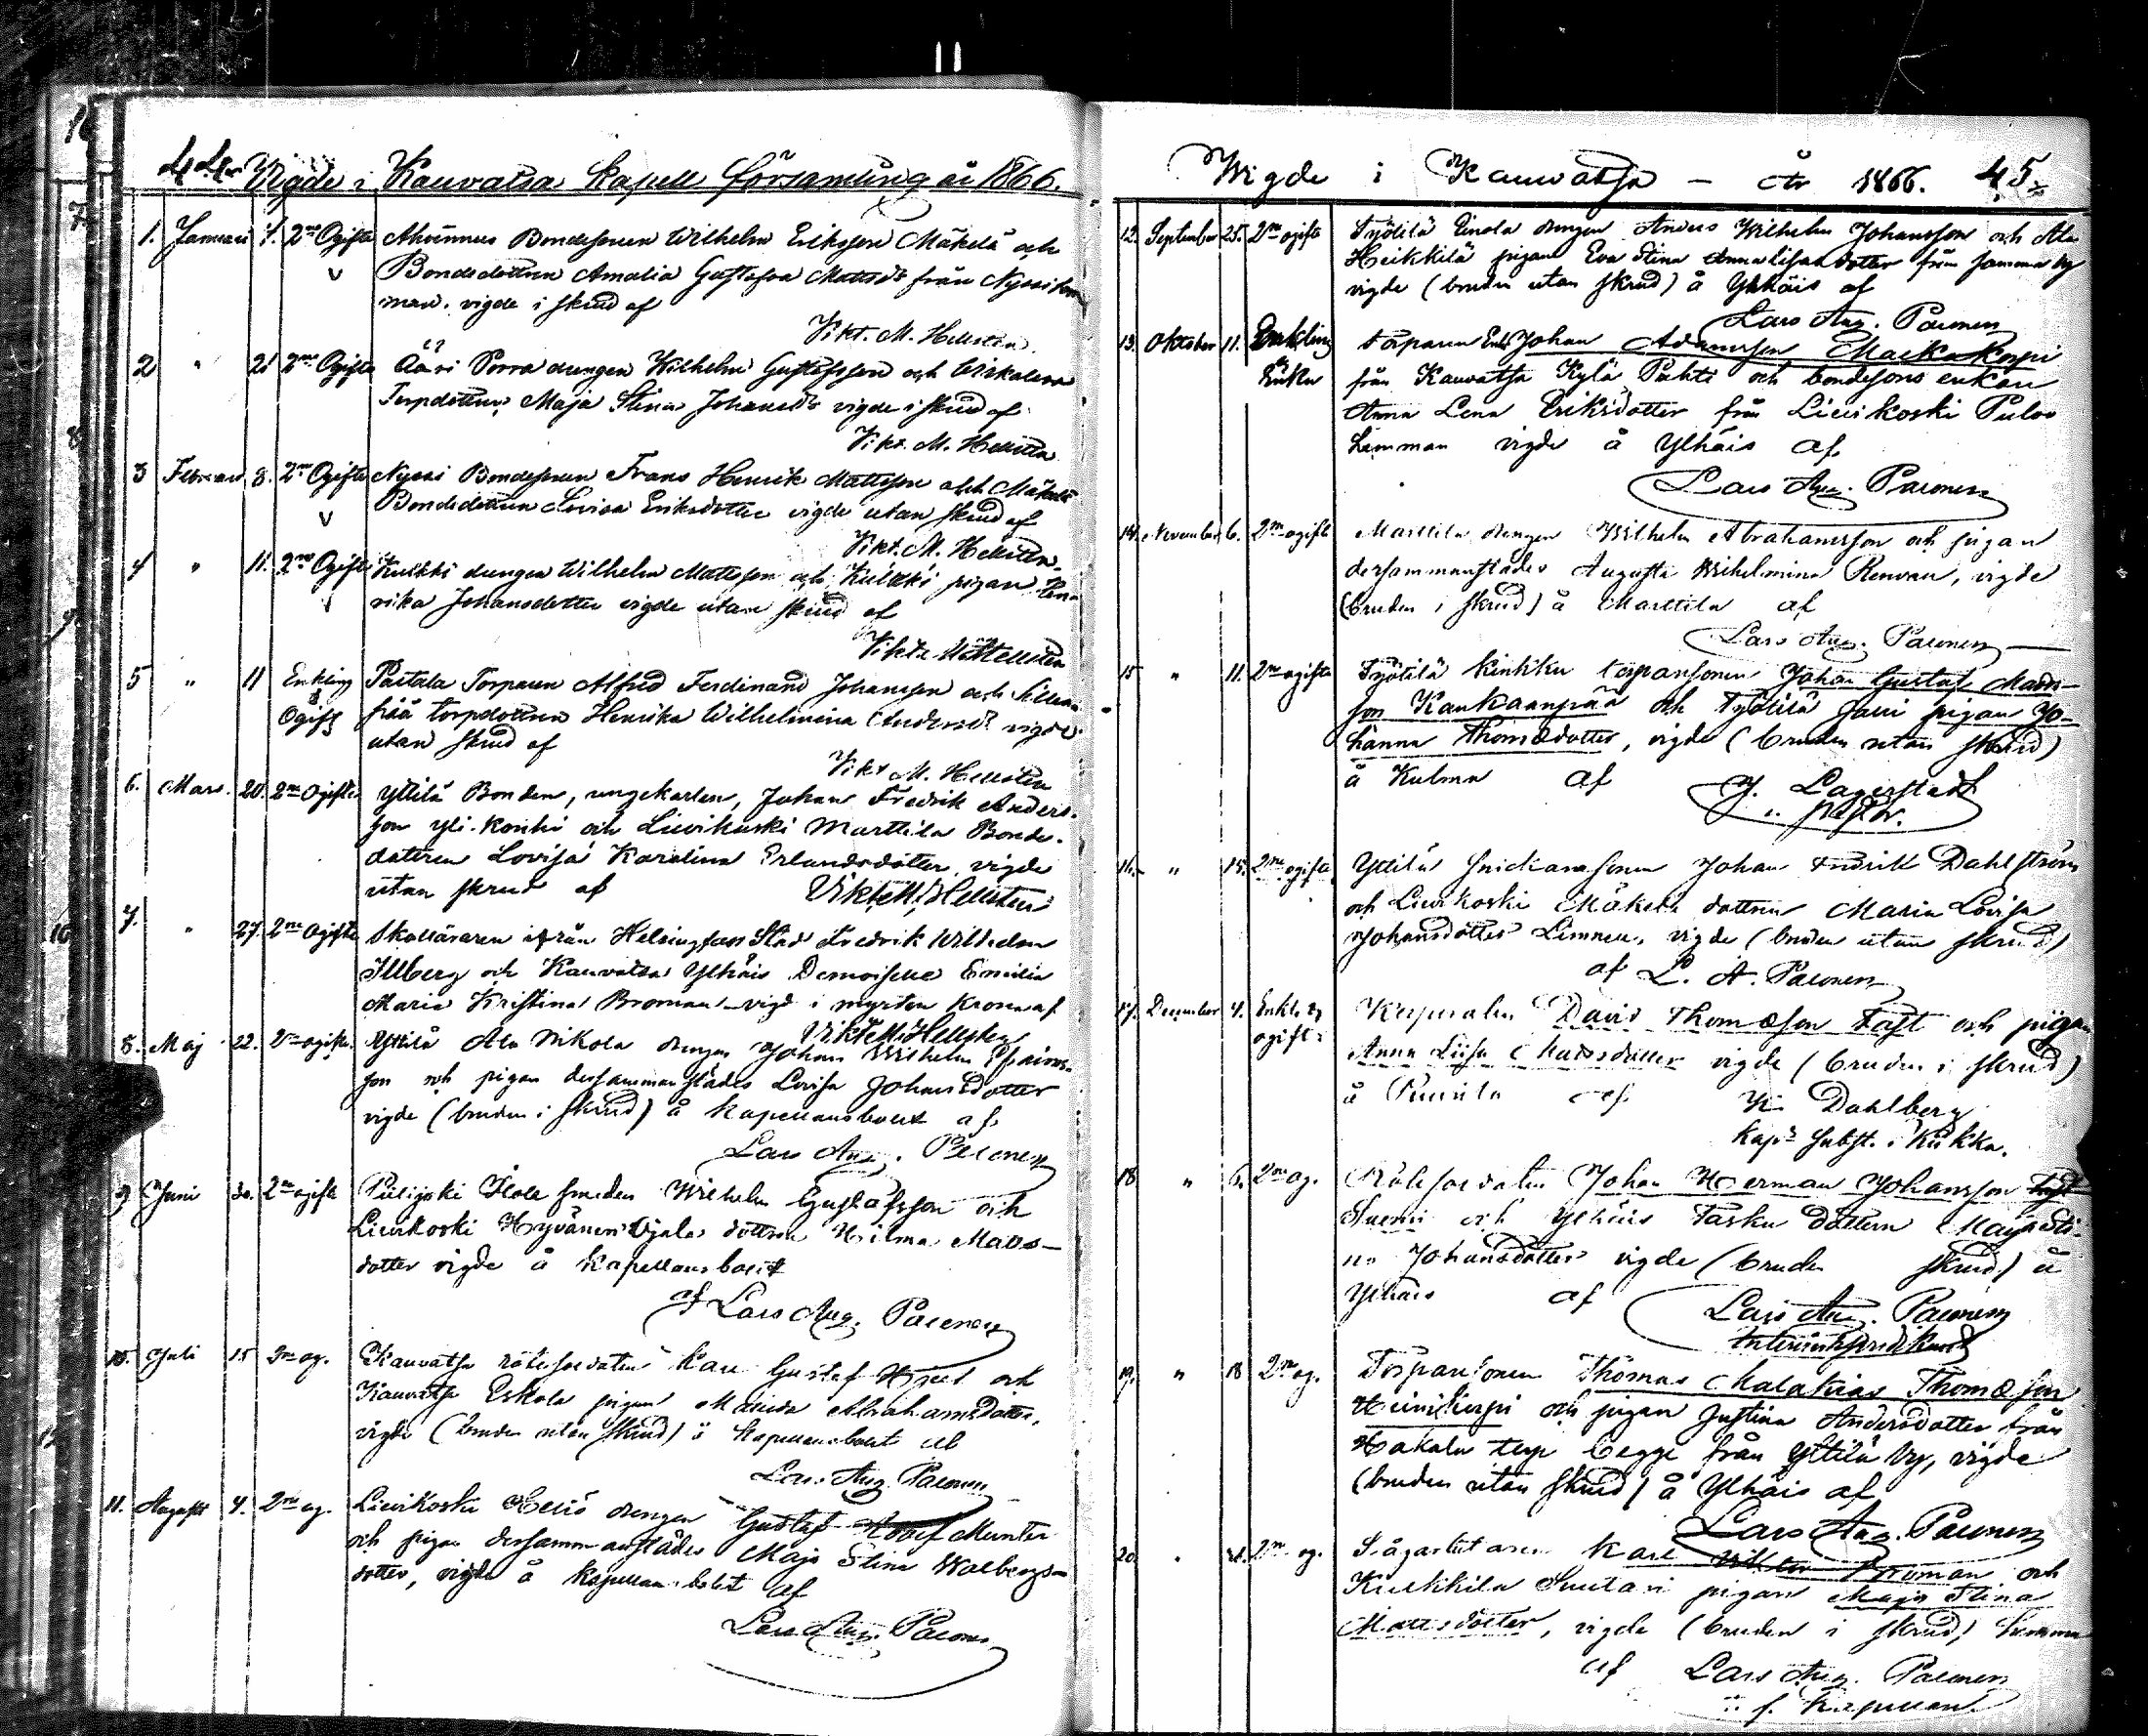 44. Vigde i Kauvatsa Kapell församling år 1866.
1. Januari 1. 2ne Ogifte Ahvënnus Bondesonen Wilhelm Eriksson Mäkelä och
v Bondedottren Amalia Gustafva Mattsdr från Nyssi
vigde i skrud af
Vikt. M. Hellsten.
2 " 21 2ne Ogifte Ääri Porra drengen Wilhelm Gustafsson och
Torpdottren Maja Stina Johansdr vigde i skrud af
Vikt. M. Hellsten
3 Februari 8. 2ne Ogifte Nyssi Bondesonen Frans Henrik Mattsson och Mäkelä
v Bondedottren Lovisa Eriksdotter vigde utan skrud af
Vikt. M. Hellsten
4 " 11. 2ne Ogifte Kulkki drengen Wilhelm Mattsson och Kulkki pigan Hen
v rika Johansdotter vigde utan skrud af
Vikt. M. Hellsten
5 " 11 Enkling Paitala Torparen Alfred Ferdinand Johansson och
& Ogift pää torpdottren Henrika Wilhelmina Andersdr vigde
utan skrud af
Vikt M. Hellsten
6. Mars. 20. 2ne Ogifte Yttilä Bonden, ungekarlen, Johan Fredrik Anders-
son Yli-Konhi och Lievikoski Marttila Bonde-
dottren Lovisa Karolina Erlandsdotter, vigde
utan skrud af Vikt. M. Hellsten
7. " 27. 2ne Ogifte Skolläraren ifrån Helsingfors Stad Fredrik Wilhelm
Illberg och Kauvatsa Ylhäis Demoiselle Emilia
Maria Kristina Broman vigd i myrten krona af
Vikt. M. Hellsten
8. Maj 22. 2ne ogifte. Yttilä Ala Nikola drengen Johan Wilhelm
son och pigan dersammanstädes Lovisa Johansdotter
vigde (bruden i skrud) å Kapellansbolet af
Lars Aug. Paeonen
9. Juni 30. 2ne ogifte Piilijoki Ilola smeden Wilhelm Gustafsson och
Lievikoski Hyvänen Ojala dottren Hilma Matts-
dotter vigde å Kapellansbolet
af Lars Aug. Paeonen
10. Juli 15 2ne og. Kauvatsa rotesoldaten Karl Gustaf och
Kauvatsa Eskola pigan Abrahamsdotter,
vigde (bruden utan skrud) å Kapellansbolet af
Lars Aug. Paeonen
11. Augusti 4. 2ne og. Lievikoski drengen Gustaf Adolf Munter
och pigan dersammanstädes Maja Stina Walbergs-
dotter, vigde å Kapellansbolet af
Lars Aug. Paeonen
Wigde i Kauvatsa — År 1866. 45.
12. September 25. 2ne ogifte Työtilä Einola drengen Anders Wilhelm Johansson och Ala
Heikkilä pigan Eva Stina Annalisasdotter från samma by
vigde (bruden utan skrud) å Ylhäis af
Lars Aug. Paeonen
13. Oktober 11. Enkling torparen Enkl. Johan Adamsson Maekakorpi
Enka från Kauvatsa Kylä Puhti och bondesons enkan
Anna Lena Eriksdotter från Lievikoski
Limman vigde å Ylhäis af
Lars Aug. Paeonen
14. November 6. 2ne ogifte Marttila drengen Wilhelm Abrahamsson och pigan
dersammanstädes Augusta Wilhelmina Renvan, vigde
(bruden i skrud) å Marttila af
Lars Aug. Paeonen
15 " 11. 2ne ogifte Työtilä Kinkku torparsonen Johan Gustaf Matts-
son Kankaanpää och Työtilä Jaui pigan Jo-
hanna Thomædotter, vigde (bruden utan skrud)
å Kulma af J. Lagerstedt
v. pastor.
16. " 15. 2ne ogifte Yttilä Snickaresonen Johan Fredrik Dahlström
och Lievikoski Mäkelä dottren Maria Lovisa
Johansdotter Limnen, vigde (bruden utan skrud)
af L. A. Paeonen
17. December 4. Enkl. & ogift: Korpralen David Thomæson Fast och pigan
Anna Lisa Mattsdotter vigde (bruden i skrud)
å Puntila af Dahlberg
Kap:s subst. i Kiikka.
18 " 6. 2ne og. Rotesoldaten Johan Herman Johansson
och Ylhäis Tasku dottern Maja Sti-
na Johansdotter vigde (bruden skrud) å
Ylhäis af Lars Aug. Paeonen
19. " 18 2ne og. Torparsonen Thomas Malakias Thomæson
och pigan Justina Andersdotter från
Hakala torp begge från Yttilä by, vigde
(bruden utan skrud) å Ylhäis af
Lars Aug. Paeonen
20. " 2ne og. Sågarbetaren Karl Viktor Broman och
Kulkkila Suutari pigan Maja Stina
Mattsdotter, vigde (bruden i skrud)
af Lars Aug. Paeonen